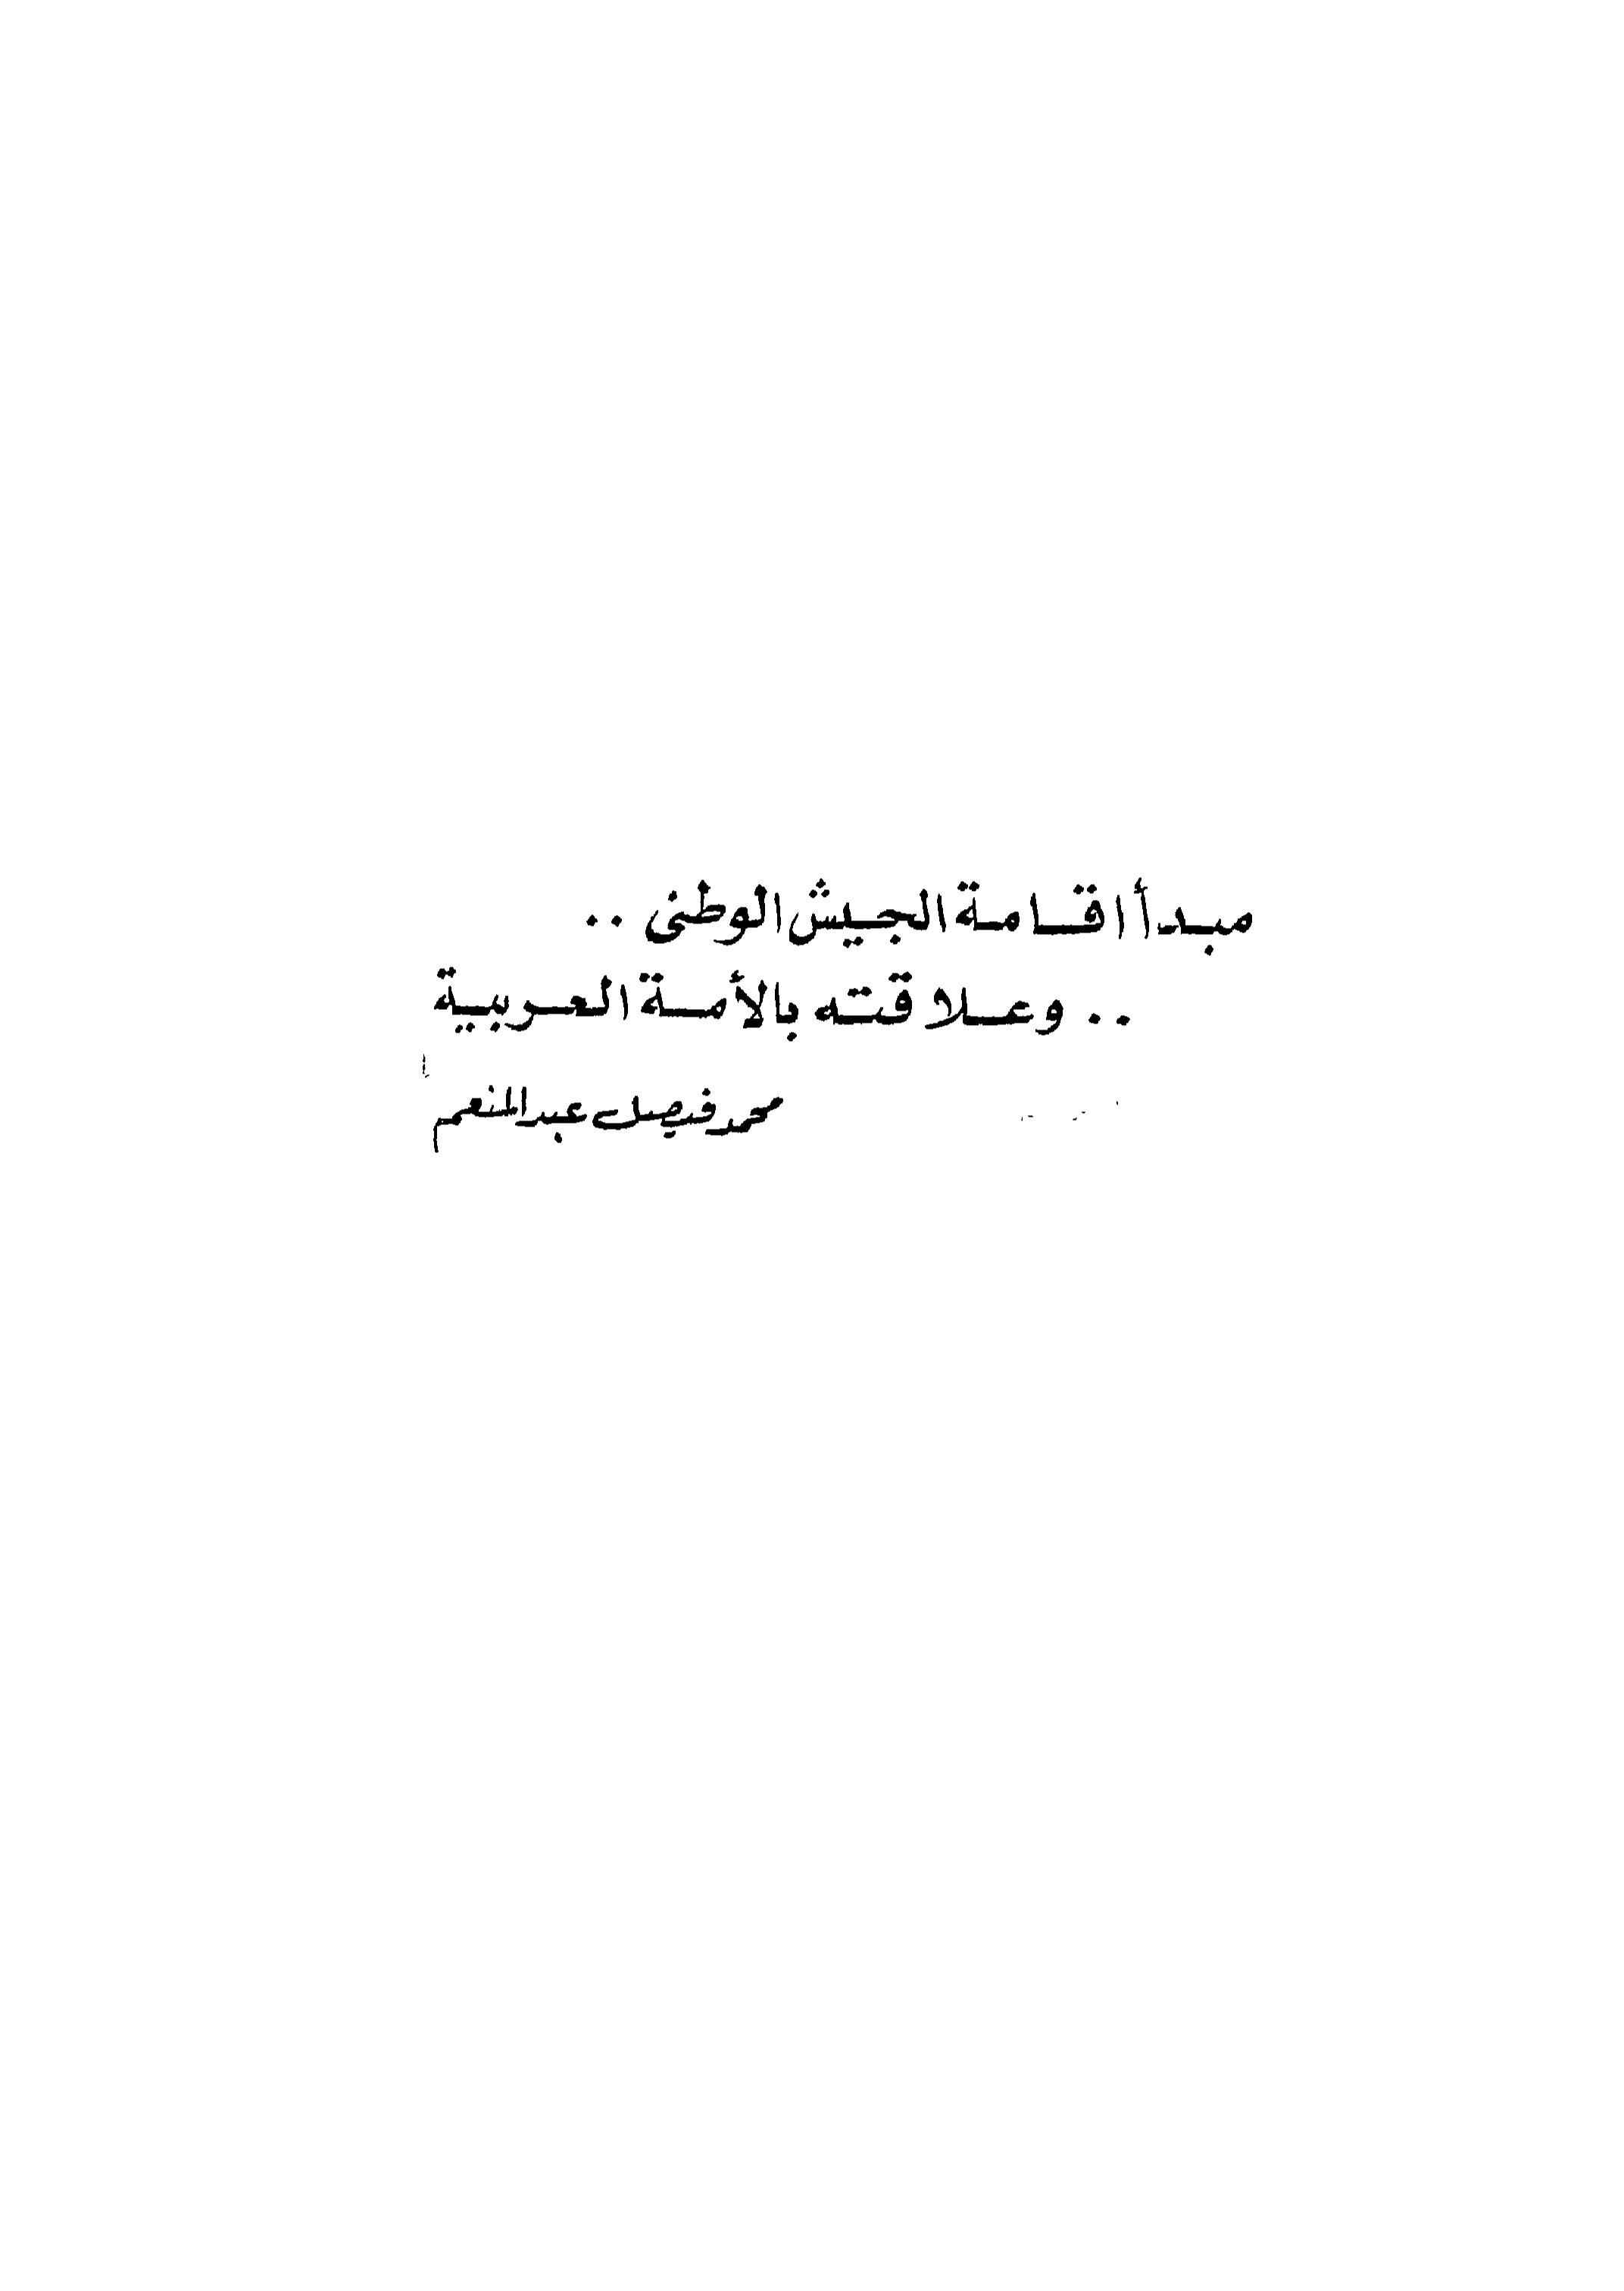 مبدأ اقامة الجيش الوطنى ..
.. وعلاقته بالأمة العربية
محمد فيصل عبد المنعم